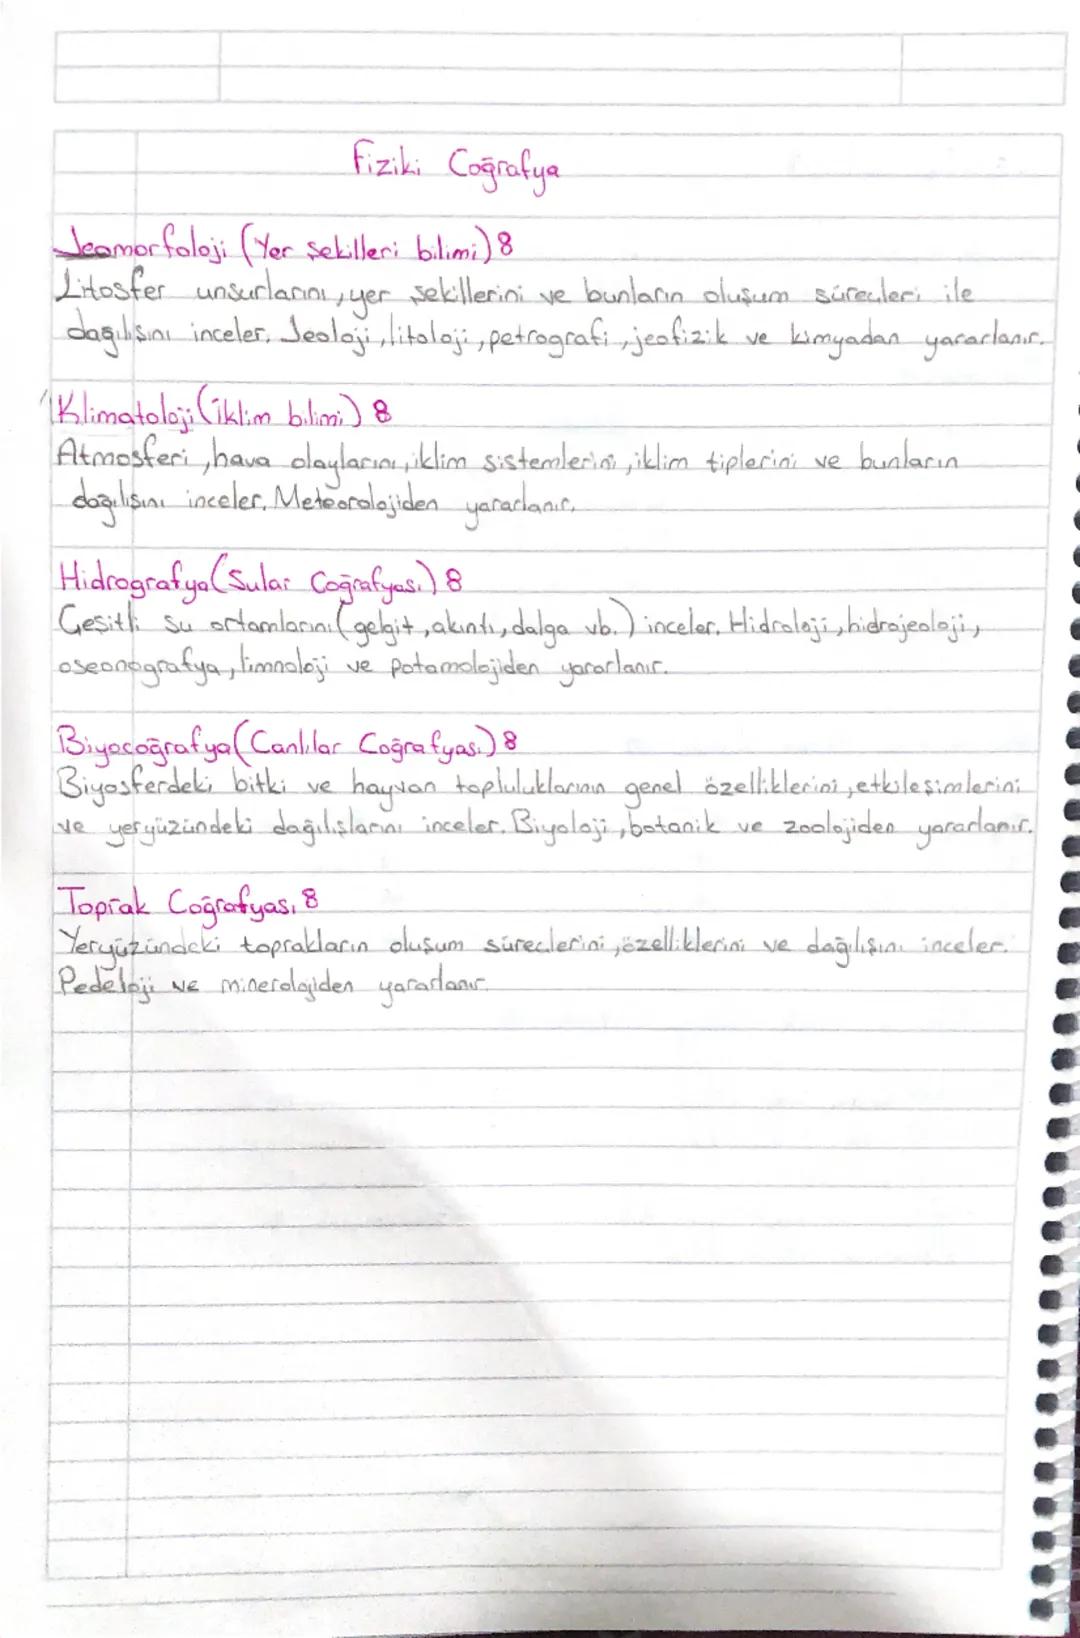 Fiziki Coğrafya
Jeomorfoloji (Yer Şekilleri bilimi) 8
Litosfer unsurlarını, yer şekillerini ve bunların oluşum süreçleri ile
dağılışını inceler. Jeoloji, litoloji, petrografi, jeofizik ve kimyadan yararlanır.
Klimatoloji (iklim bilimi) 8
Atmosferi, hava olaylarını, iklim sistemlerini, iklim tiplerini ve bunların
dağılışını inceler. Meteorolojiden yararlanır.
Hidrografya (Sular Coğrafyası) 8
Çeşitli su ortamlarını (gelgit, akıntı, dalga vb.) inceler. Hidroloji, hidrojeoloji,
oseonografya, limnoloji ve potamolojiden yararlanır.
Biyocoğrafya (Canlılar Coğrafyası) 8
Biyosferdeki bitki ve hayvan topluluklarının genel özelliklerini, etkileşimlerini
ve yeryüzündeki dağılışlarını inceler. Biyoloji, botanik ve zoolojiden yararlanır.
Toprak Coğrafyası 8
Yeryüzündeki toprakların oluşum süreçlerini, özelliklerini ve dağılışını inceler.
Pedeloji ve minerolojiden yararlanır.